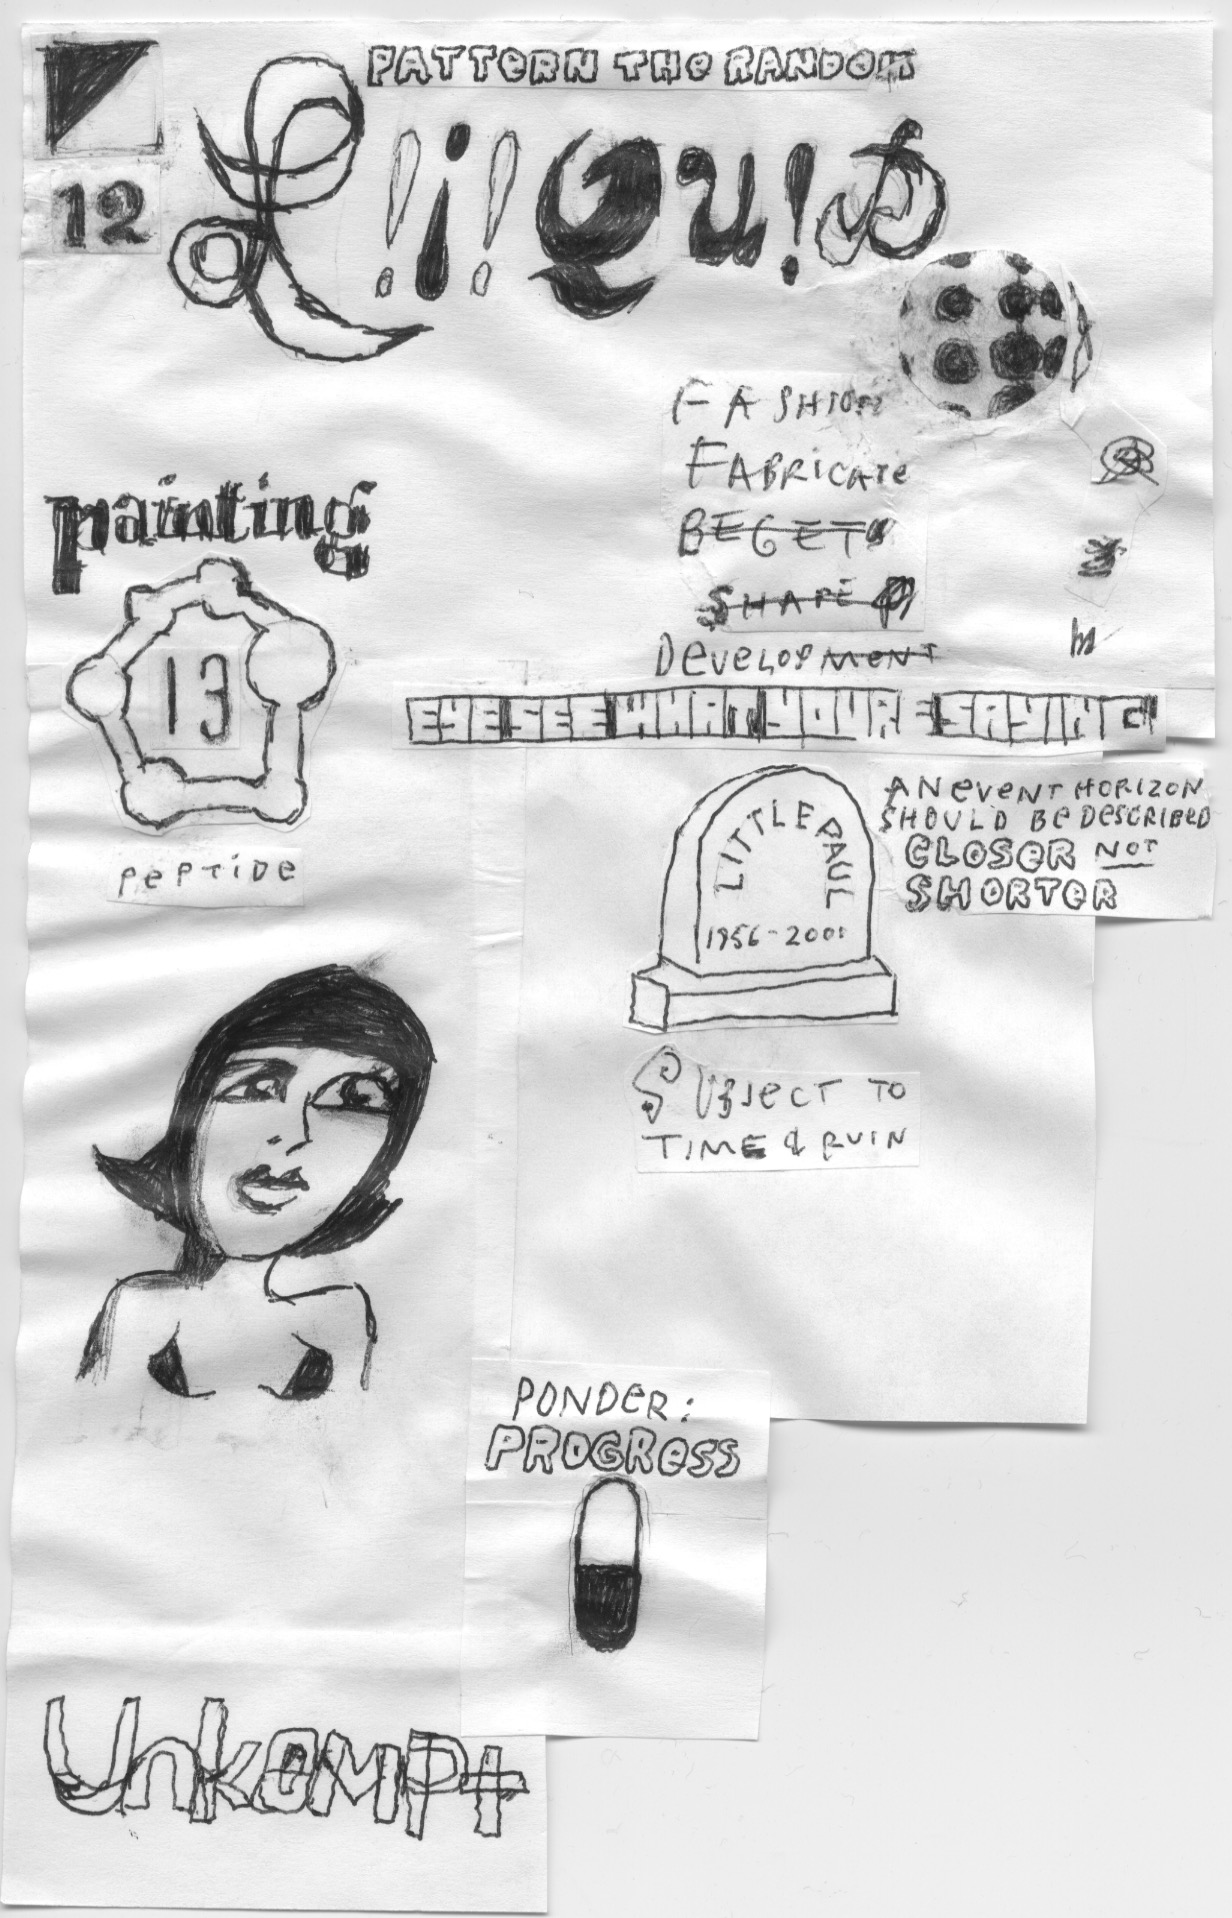 PATTERN THE RANDOM
12
L!¡!QU!D
FASHION
FABRICATE
BEGET
SHAPE
DEVELOPMENT
painting
13
PEPTIDE
EYESEEWHATYOURESAYING
LITTLE PAUL
1956-2001
AN EVENT HORIZON
SHOULD BE DESCRIBED
CLOSER NOT
SHORTER
SUBJECT TO
TIME & RUIN
PONDER:
PROGRESS
UnkeMPt